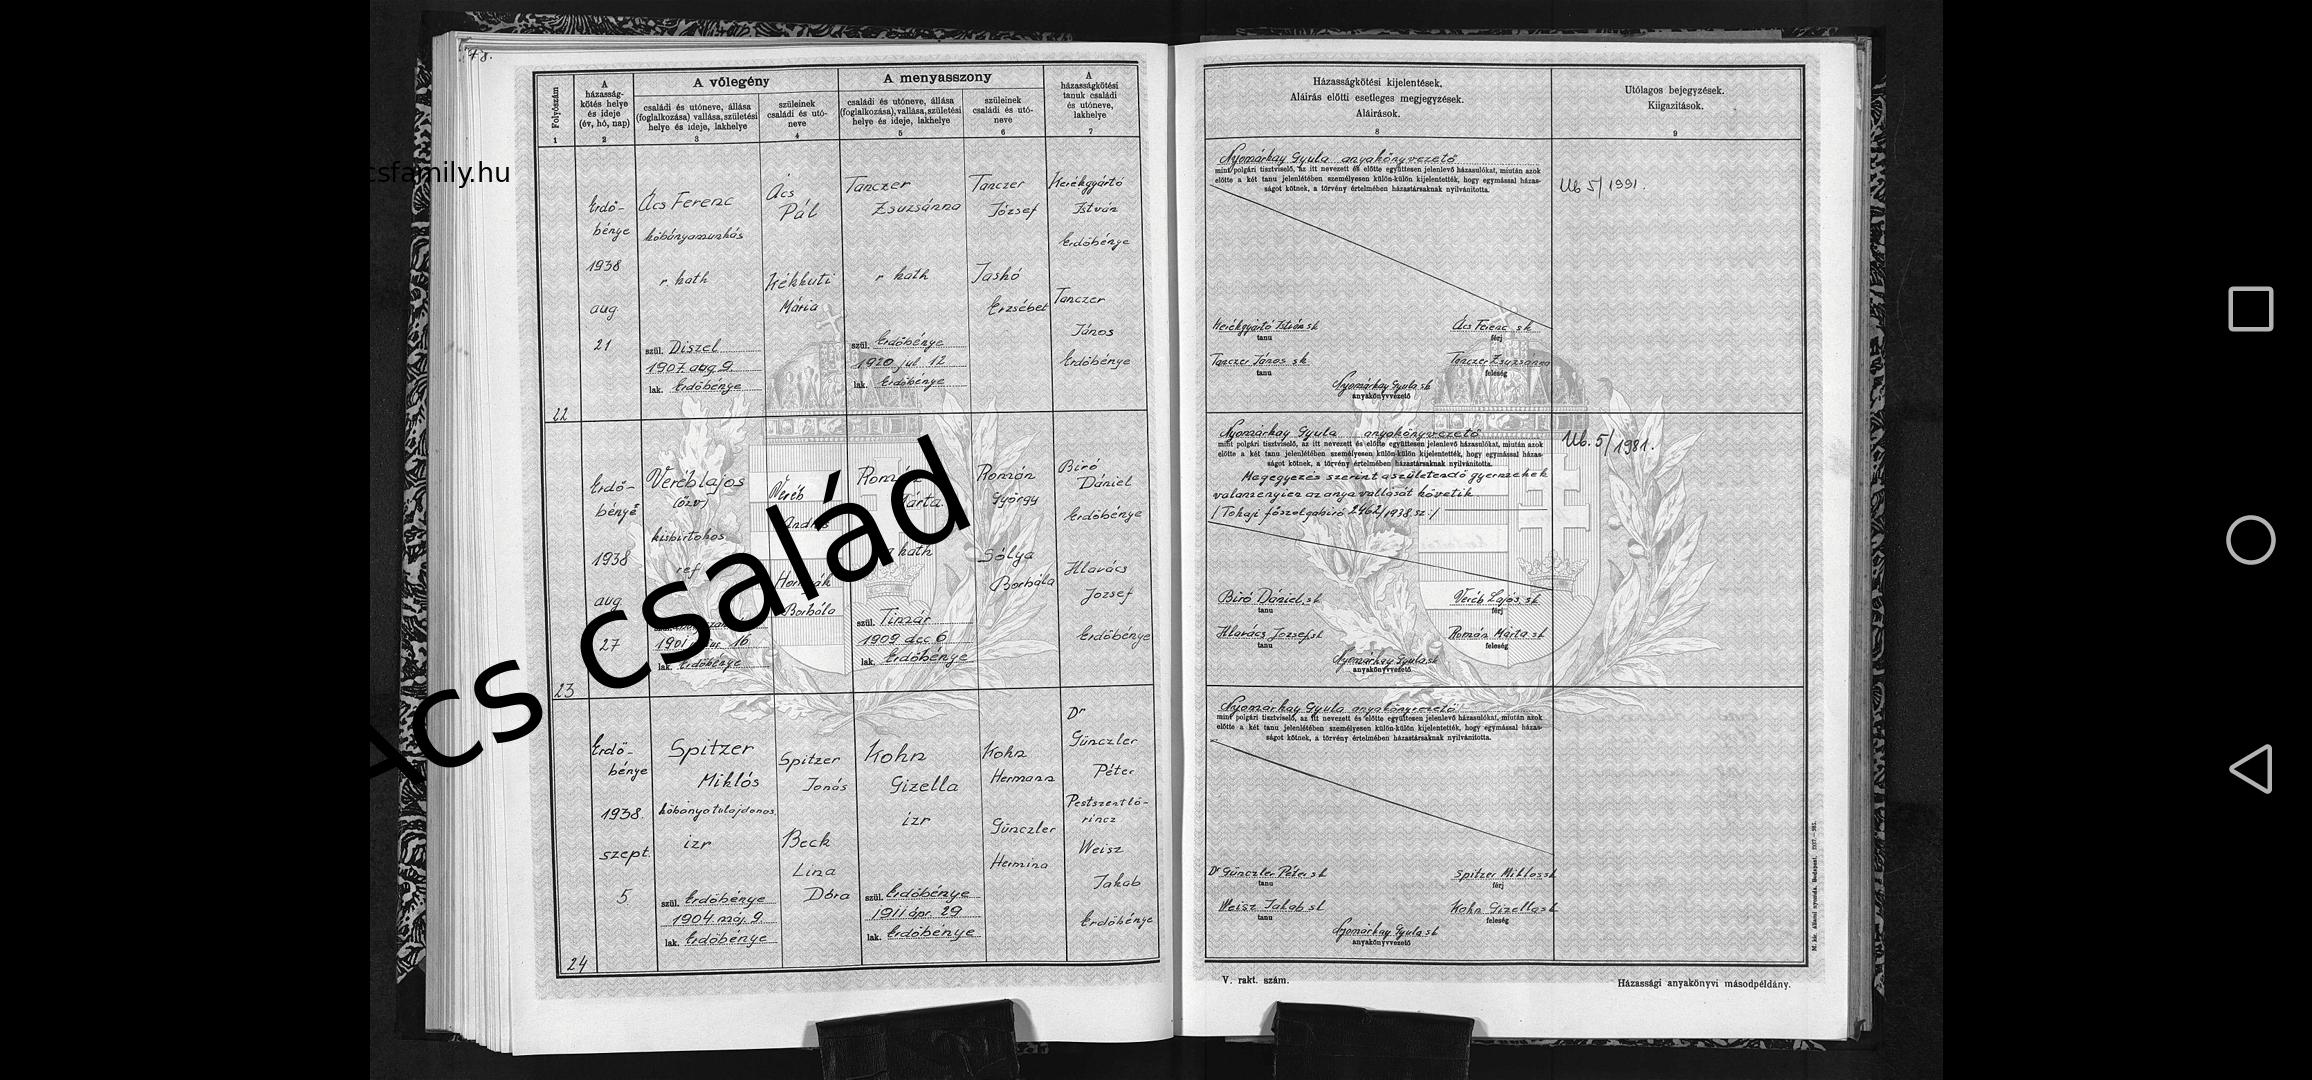 csfamily.hu
Ács család
Folyószám
A
házasság-
kötés helye
és ideje
(év, hó, nap)
A vőlegény
családi és utóneve, állása
(foglalkozása) vallása, születési
helye és ideje, lakhelye
szüleinek
családi és utó-
neve
A menyasszony
családi és utóneve, állása
(foglalkozása), vallása, születési
helye és ideje, lakhelye
szüleinek
családi és utó-
neve
A
házasságkötési
tanuk családi
és utóneve,
lakhelye
1 2 3 4 5 6 7
22
Erdő-
bénye
1938
aug
21
Ács Ferenc
kőbányamunkás
r. kath
szül. Diszel
1907 aug 9.
lak. Erdőbénye
Ács
Pál
Kékkuti
Mária
Tanczer
Zsuzsánna
r kath
szül. Erdőbénye
1920 jul 12
lak. Erdőbénye
Tanczer
József
Jaskó
Erzsébet
Kerékgyártó
István
Erdőbénye
Tanczer
János
Erdőbénye
23
Erdő-
bénye
1938
aug
27
Veréb Lajos
(özv)
kisbirtokos
ref
16
lak. Erdőbénye
Veréb
András
Borbála
Román
Márta
kath
szül. Timár
1909 dec 6
lak. Erdőbénye
Román
György
Sólya
Borbála
Biró
Dániel
Erdőbénye
Hlavács
József
Erdőbénye
24
Erdő-
bénye
1938.
szept.
5
Spitzer
Miklós
kőbányatulajdonos
izr
szül. Erdőbénye
1904 máj. 9.
lak. Erdőbénye
Spitzer
Jónás
Beck
Lina
Dóra
Kohn
Gizella
izr
szül. Erdőbénye
1911 ápr. 29
lak. Erdőbénye
Kohn
Hermann
Günczler
Hermina
Dr
Günczler
Péter
Pestszentlő-
rincz
Weisz
Jakab
Erdőbénye
Házasságkötési kijelentések,
Aláirás előtti esetleges megjegyzések.
Aláirások.
8
Utólagos bejegyzések.
Kiigazitások.
9
Nyomárkay Gyula anyakönyvezető
mint polgári tisztviselő, az itt nevezett és előtte együttesen jelenlevő házasulókat, miután azok
előtte a két tanu jelenlétében személyesen külön-külön kijelentették, hogy egymással házas-
ságot kötnek, a törvény értelmében házastársaknak nyilvánitotta.
Ub 5/1991.
Kerékgyártó István sk
tanu
Ács Ferenc sk
férj
Tanczer János sk
tanu
Tanczer Zsuzsánna
feleség
Nyomárkay Gyula sk
anyakönyvvezető
Nyomárkay Gyula anyakönyvezető
mint polgári tisztviselő, az itt nevezett és előtte együttesen jelenlevő házasulókat, miután azok
előtte a két tanu jelenlétében személyesen külön-külön kijelentették, hogy egymással házas-
ságot kötnek, a törvény értelmében házastársaknak nyilvánitotta.
Megegyezés szerint a születendő gyermekek
valamennyien az anya vallását követik
/Tokaji főszolgabiró 2462/1938. sz:/
Ub. 5/1981.
Biró Dániel sk
tanu
Veréb Lajos sk
férj
Hlavács József sk
tanu
Román Márta sk
feleség
Nyomárkay Gyula sk
anyakönyvvezető
Nyomárkay Gyula anyakönyvezető
mint polgári tisztviselő, az itt nevezett és előtte együttesen jelenlevő házasulókat, miután azok
előtte a két tanu jelenlétében személyesen külön-külön kijelentették, hogy egymással házas-
ságot kötnek, a törvény értelmében házastársaknak nyilvánitotta.
Dr Günczler Péter sk
tanu
Spitzer Miklós sk
férj
Weisz Jakab sk
tanu
Kohn Gizella sk
feleség
Nyomárkay Gyula sk
anyakönyvvezető
V. rakt. szám.
Házassági anyakönyvi másodpéldány.